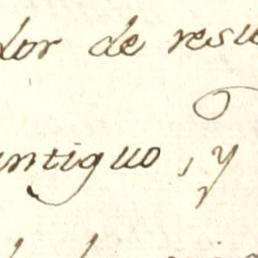 dor de resu
antiguo, y